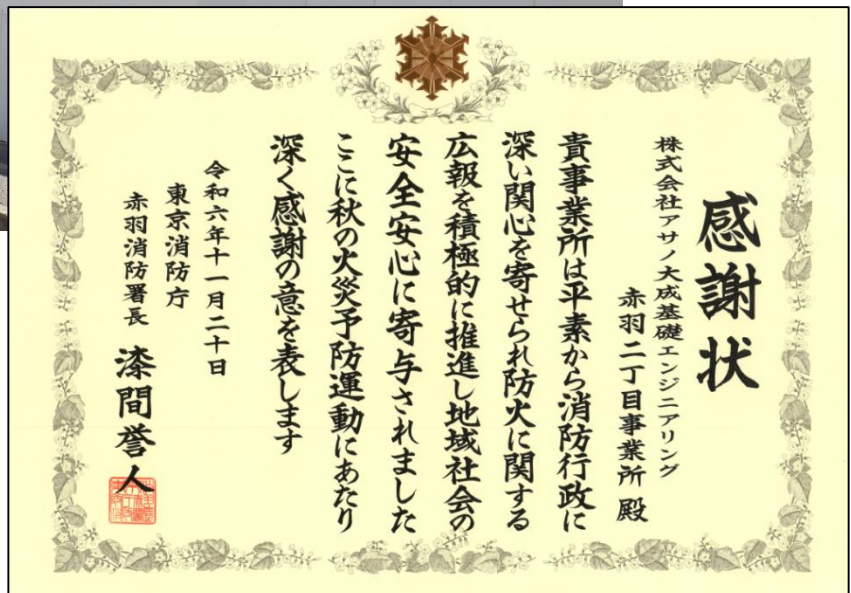 感謝状
株式会社アサノ大成基礎エンジニアリング
赤羽二丁目事業所 殿
貴事業所は平素から消防行政に
深い関心を寄せられ防火に関する
広報を積極的に推進し地域社会の
安全安心に寄与されました
ここに秋の火災予防運動にあたり
深く感謝の意を表します
令和六年十一月二十日
東京消防庁
赤羽消防署長 漆間誉人